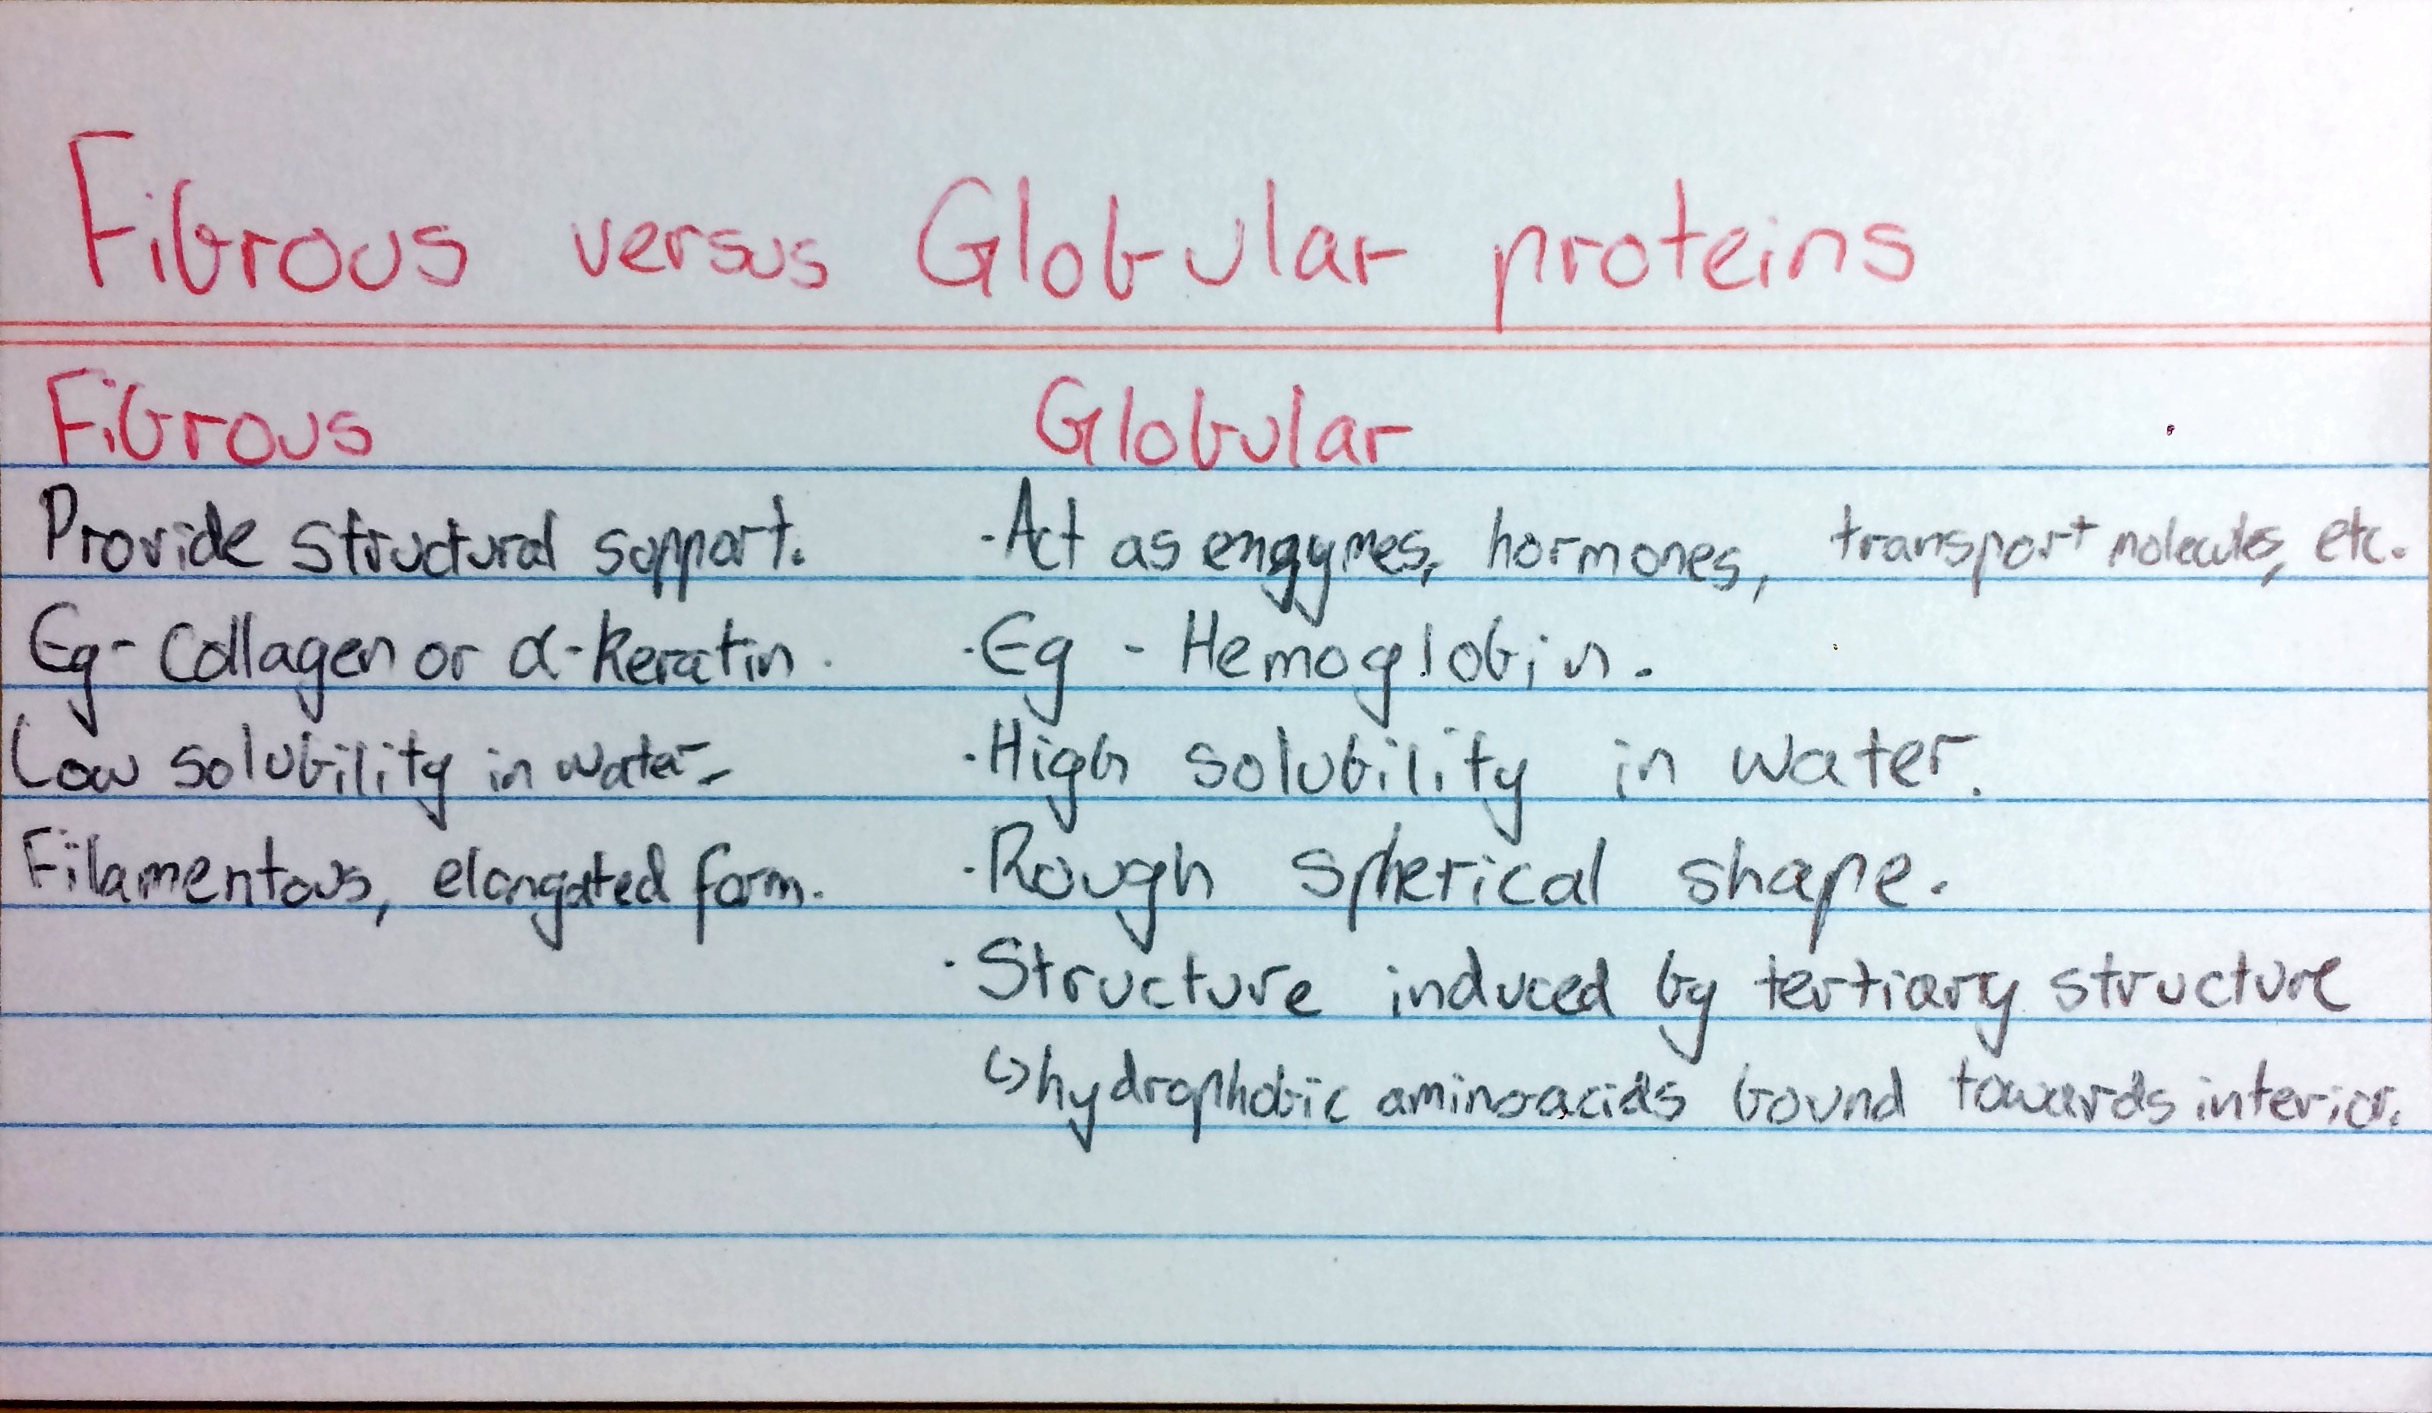 Fibrous versus Globular proteins
Fibrous
Provide structural support.
Eg - Collagen or α-keratin.
Low solubility in water.
Filamentous, elongated form.
Globular
· Act as enzymes, hormones, transport molecules, etc.
· Eg - Hemoglobin.
· High solubility in water.
· Rough spherical shape.
· Structure induced by tertiary structure
↳ hydrophobic amino acids bound towards interior.